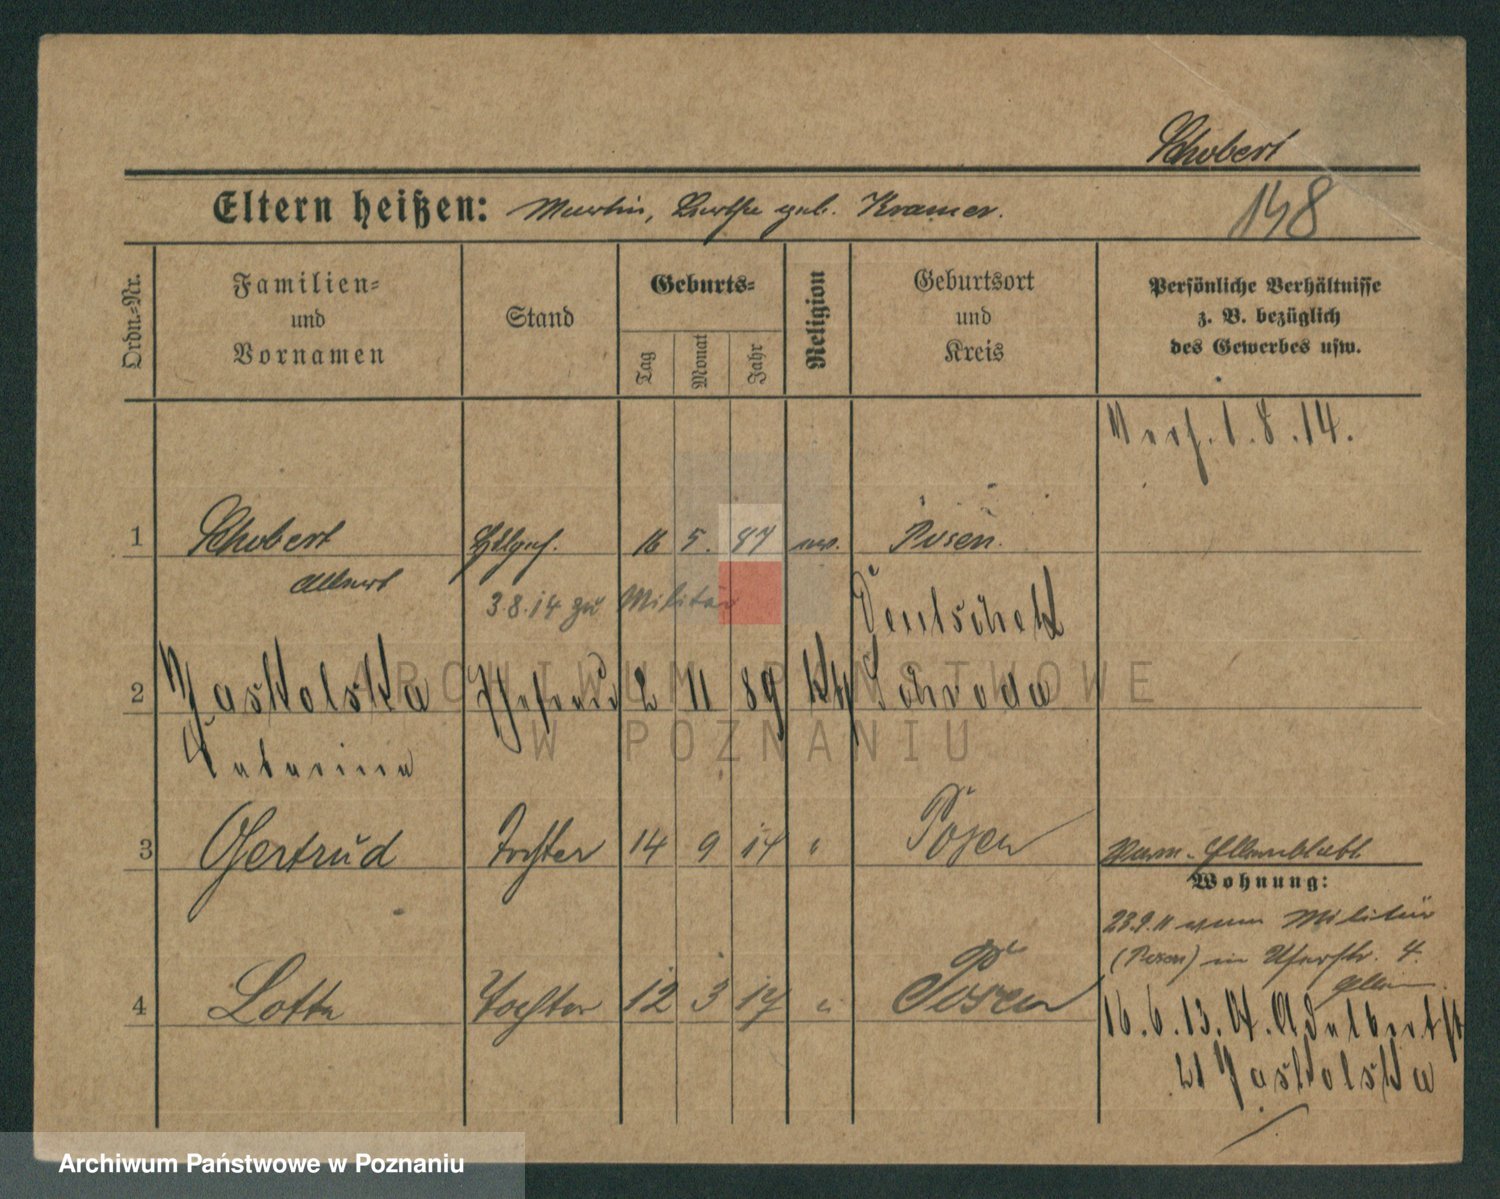 Schobert
Eltern heißen: Martin, Berthe geb. Kramer.
148
Ordn.-Nr.
Familien-
und
Vornamen
Stand
Geburts-
Tag
Monat
Jahr
Religion
Geburtsort
und
Kreis
Persönliche Verhältnisse
z. B. bezüglich
des Gewerbes usw.
Verh. 1.8.14.
1 Schobert 16 5. 87 ev. Posen.
Albert
3.8.14 zu Militär
Deutscheck
2 Jaskolska Ehefrau 2 11 89 kth Schroda
Katarina
3 Gertrud Tochter 14 9 14 " Posen
Wohnung:
28.9.11 vom Militär
(Posen) in Uferstr. 4.
4 Lotte Tochter 12 3 17 " Posen
16.6.13. St. Adalbertst
21 Jaskolska
ARCHIWUM PAŃSTWOWE
W POZNANIU
Archiwum Państwowe w Poznaniu